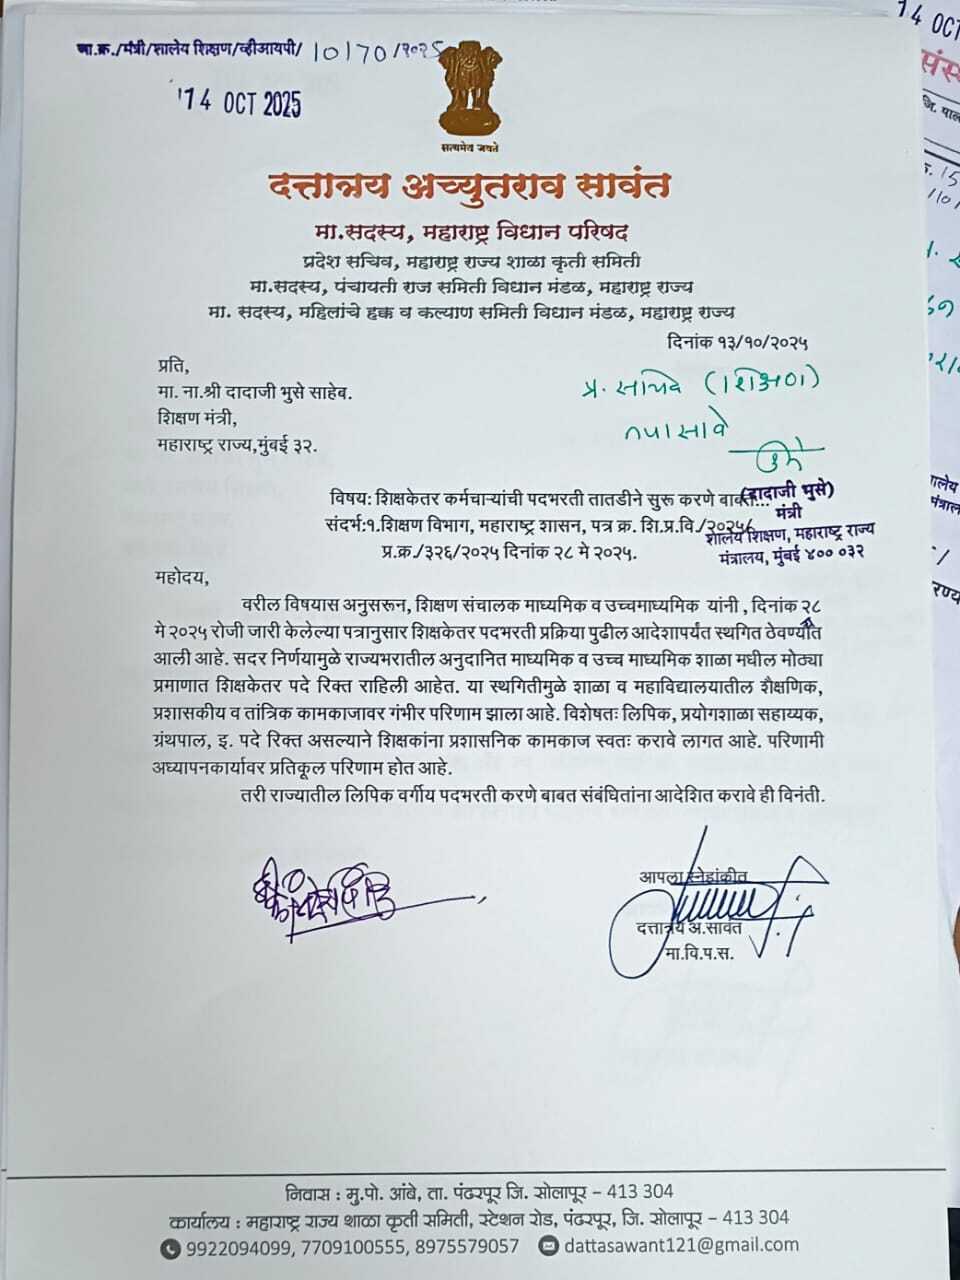 जा.क्र./मंत्री/शालेय शिक्षण/व्हीआयपी/ 10170 /२०२5
14 OCT 2025
सत्यमेव जयते
दत्तात्रय अच्युतराव सावंत
मा.सदस्य, महाराष्ट्र विधान परिषद
प्रदेश सचिव, महाराष्ट्र राज्य शाळा कृती समिती
मा.सदस्य, पंचायती राज समिती विधान मंडळ, महाराष्ट्र राज्य
मा. सदस्य, महिलांचे हक्क व कल्याण समिती विधान मंडळ, महाराष्ट्र राज्य
दिनांक १३/१०/२०२५
प्रति,
मा. ना.श्री दादाजी भुसे साहेब.
शिक्षण मंत्री,
महाराष्ट्र राज्य,मुंबई ३२.
प्र. सचिव (शिक्षण)
तपासावे
(दादाजी भुसे)
मंत्री
शालेय शिक्षण, महाराष्ट्र राज्य
मंत्रालय, मुंबई ४०० ०३२
विषय: शिक्षकेतर कर्मचाऱ्यांची पदभरती तातडीने सुरू करणे बाबत...
संदर्भ:१.शिक्षण विभाग, महाराष्ट्र शासन, पत्र क्र. शि.प्र.वि./२०२५/
प्र.क्र./३२६/२०२५ दिनांक २८ मे २०२५.
महोदय,
वरील विषयास अनुसरून, शिक्षण संचालक माध्यमिक व उच्चमाध्यमिक यांनी , दिनांक २८
मे २०२५ रोजी जारी केलेल्या पत्रानुसार शिक्षकेतर पदभरती प्रक्रिया पुढील आदेशापर्यंत स्थगित ठेवण्यात
आली आहे. सदर निर्णयामुळे राज्यभरातील अनुदानित माध्यमिक व उच्च माध्यमिक शाळा मधील मोठ्या
प्रमाणात शिक्षकेतर पदे रिक्त राहिली आहेत. या स्थगितीमुळे शाळा व महाविद्यालयातील शैक्षणिक,
प्रशासकीय व तांत्रिक कामकाजावर गंभीर परिणाम झाला आहे. विशेषतः लिपिक, प्रयोगशाळा सहाय्यक,
ग्रंथपाल, इ. पदे रिक्त असल्याने शिक्षकांना प्रशासनिक कामकाज स्वतः करावे लागत आहे. परिणामी
अध्यापनकार्यावर प्रतिकूल परिणाम होत आहे.
तरी राज्यातील लिपिक वर्गीय पदभरती करणे बाबत संबंधितांना आदेशित करावे ही विनंती.
आपला स्नेहांकीत
दत्तात्रय अ.सावंत
मा.वि.प.स.
निवास : मु.पो. आंबे, ता. पंढरपूर जि. सोलापूर – 413 304
कार्यालय : महाराष्ट्र राज्य शाळा कृती समिती, स्टेशन रोड, पंढरपूर, जि. सोलापूर – 413 304
9922094099, 7709100555, 8975579057 dattasawant121@gmail.com
14 OCT